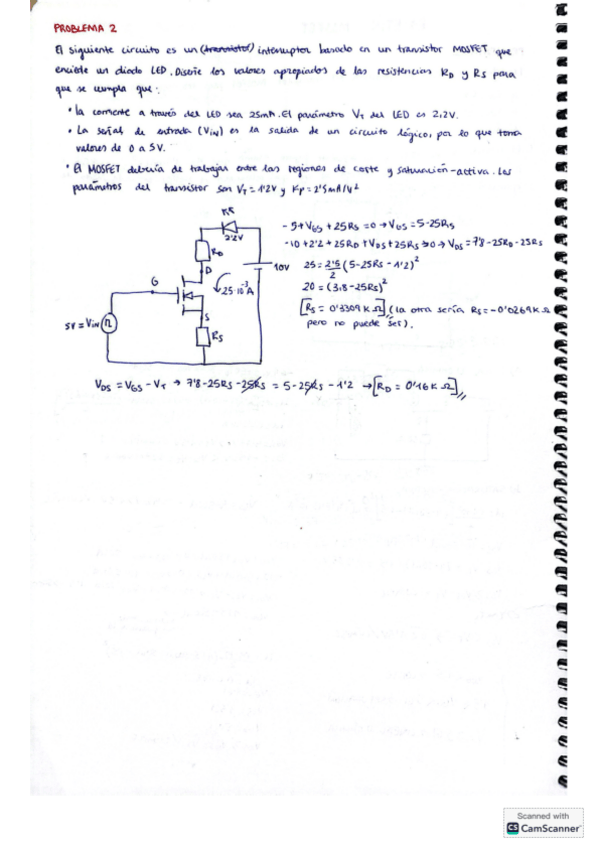 PROBLEMA 2
El siguiente circuito es un (transistor) interruptor basado en un transistor MOSFET que
enciende un diodo LED. Diseñe los valores apropiados de las resistencias RD y RS para
que se cumpla que:
• La corriente a través del LED sea 25mA. El parámetro VT del LED es 2,2V.
• La señal de entrada (VIN) es la salida de un circuito lógico, por lo que toma
valores de 0 a 5V.
• El MOSFET debería de trabajar entre las regiones de corte y saturación-activa. Los
parámetros del transistor son VT = 1'2V y Kp = 2'5mA/V²
2'2V
RD
D
G
S
10V
25·10⁻³A
5V = VIN
RS
-5+VGS + 25RS = 0 → VGS = 5-25RS
-10+2'2 + 25RD + VDS + 25RS → 0 → VDS = 7'8-25RD-25RS
25 = 2'5/2 (5-25RS - 1'2)²
20 = (3,8-25RS)²
[RS = 0'3309 KΩ] (la otra sería RS = -0'0269 KΩ
pero no puede ser).
VDS = VGS - VT → 7'8-25RS-25RS = 5-25RS - 1'2 → [RD = 0'16 KΩ]
Scanned with
CS CamScanner